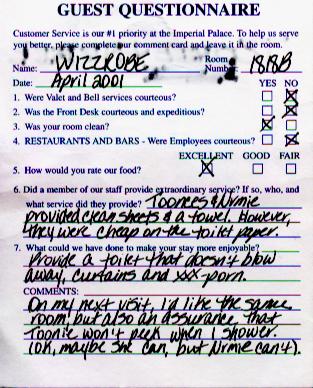 GUEST QUESTIONNAIRE
Customer Service is our #1 priority at the Imperial Palace. To help us serve
you better, please complete our comment card and leave it in the room.
Name: WIZZROBE Room Number: 1818B
Date: April 2001 YES NO
1. Were Valet and Bell services courteous?
2. Was the Front Desk courteous and expeditious?
3. Was your room clean?
4. RESTAURANTS AND BARS - Were Employees courteous?
EXCELLENT GOOD FAIR
5. How would you rate our food?
6. Did a member of our staff provide extraordinary service? If so, who, and
what service did they provide? Toonces & Nrmie
provided clean sheets & a towel. However,
they were cheap on the toilet paper.
7. What could we have done to make your stay more enjoyable?
Provide a toilet that doesn't blow
away, curtains and xxx-porn.
COMMENTS:
On my next visit, I'd like the same
room, but also an assurance that
Toonie won't peek when I shower.
(Oh, maybe she can, but Nrmie can't).